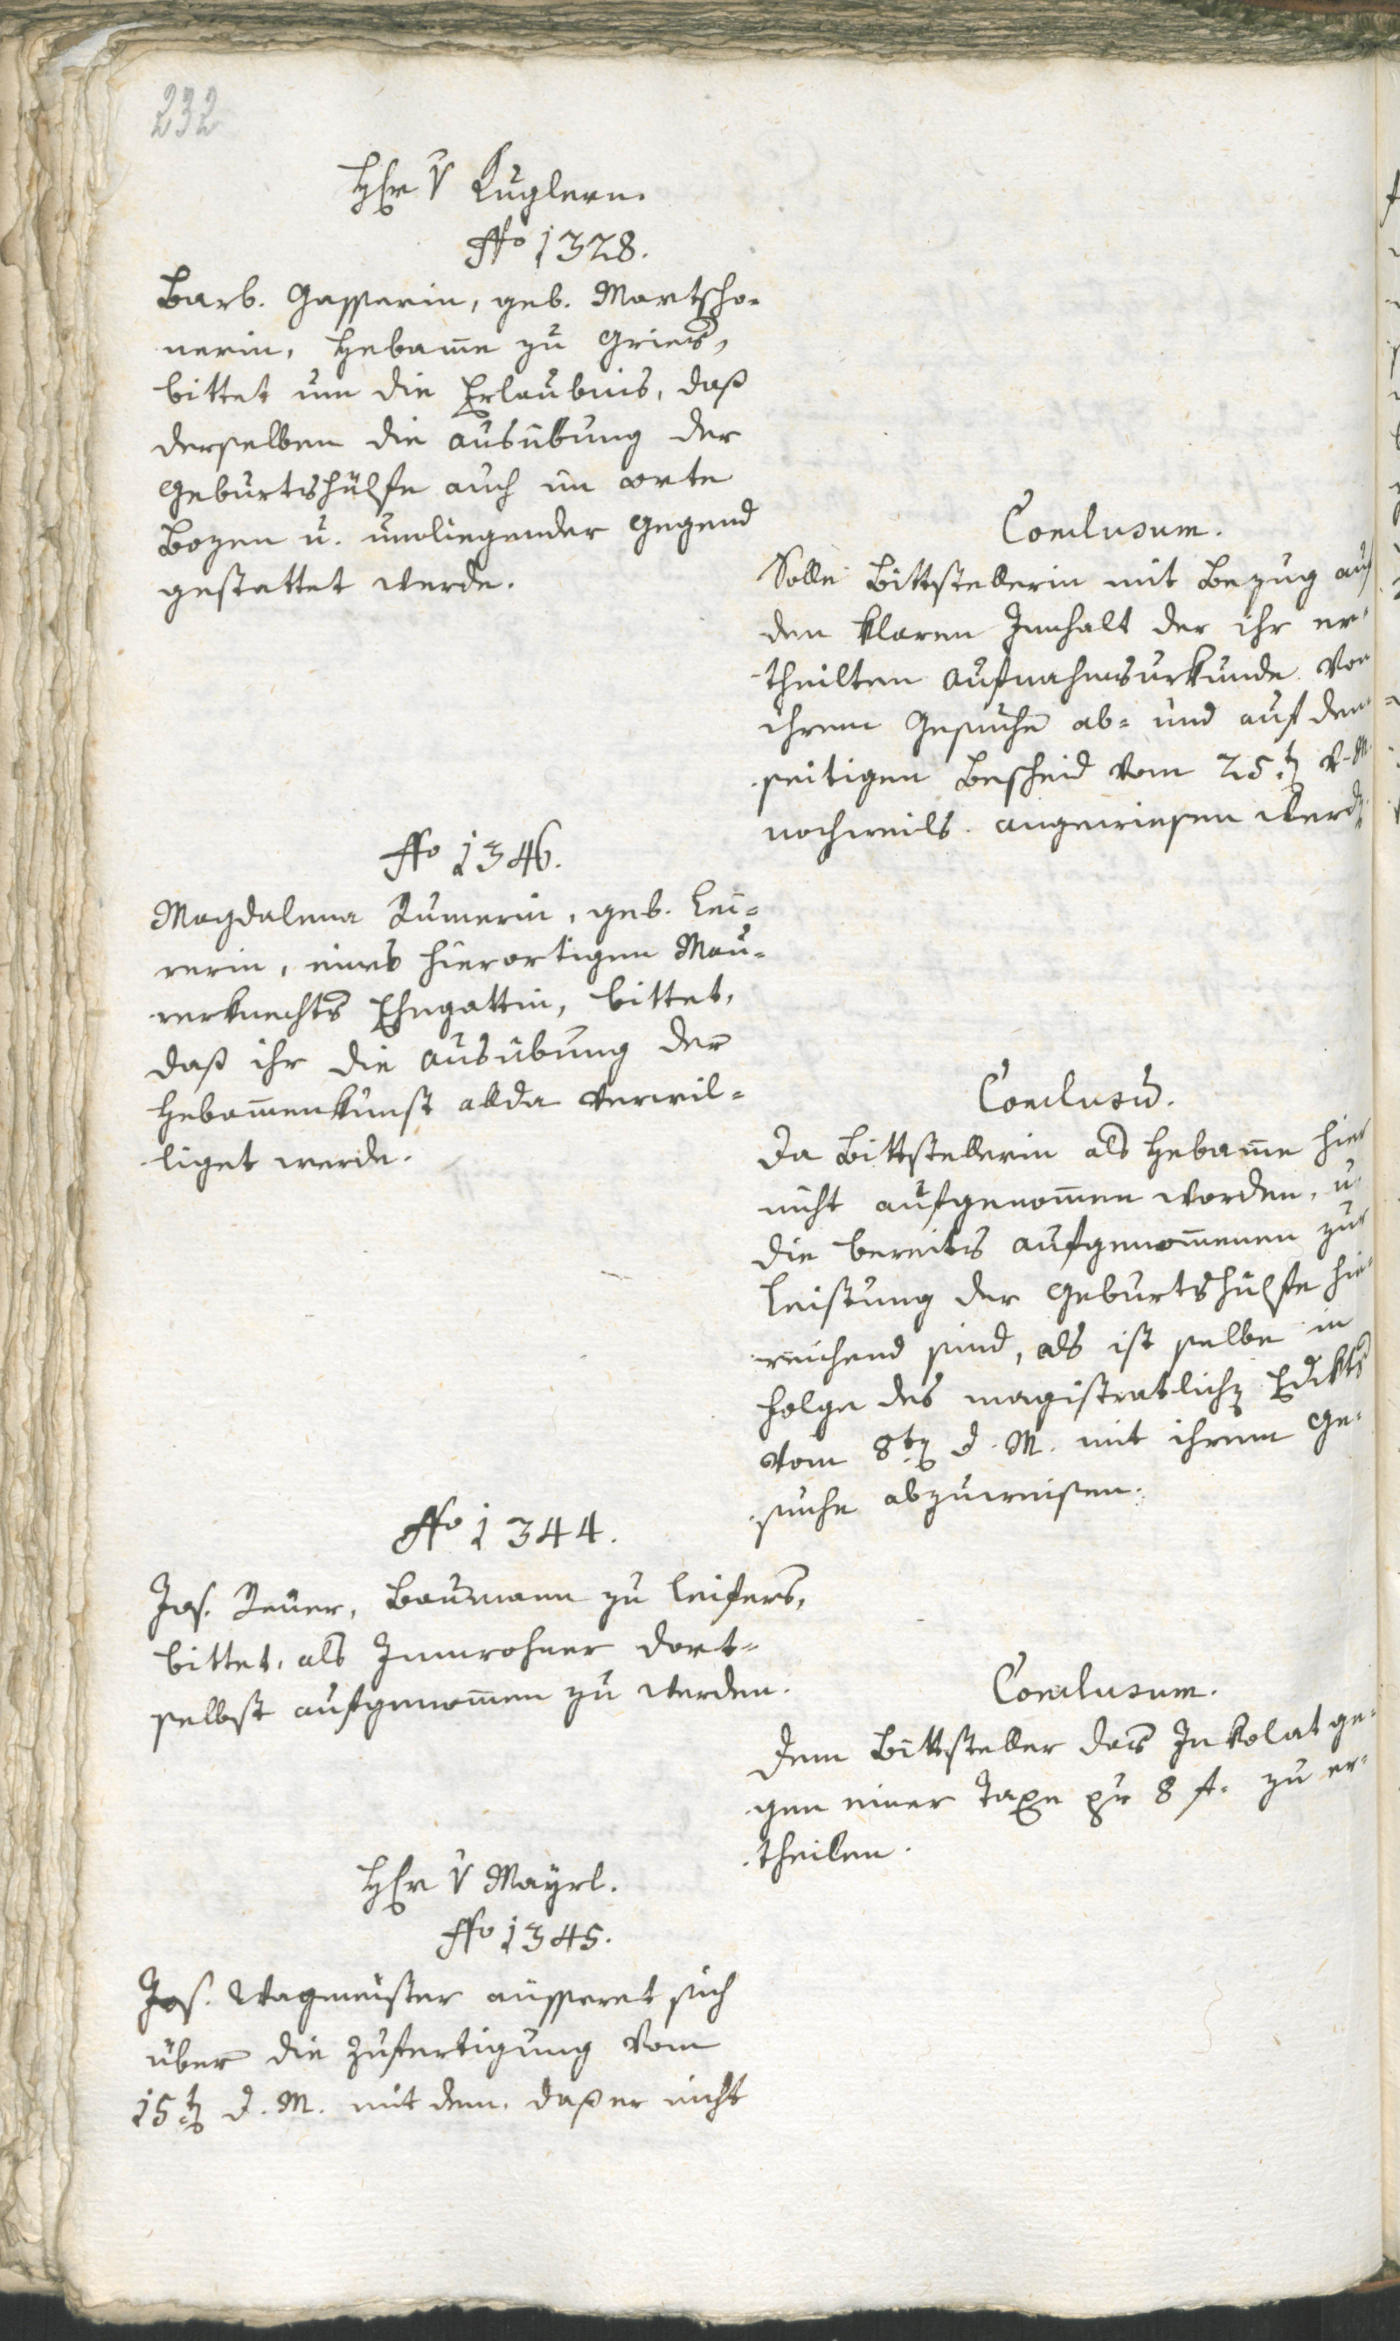 232
Hr v Kuglern.
No 1328.
Barb. Gasserin, geb. Martscho-
nerin, Hebam̄e zu Gries,
bittet um die Erlaubnis, daß
derselben die Ausübung der
Geburtshülfe auch im Orte
Bozen u. umliegender Gegend
gestattet werde.
Conclusum.
Solle Bittstellerin mit Bezug auf
den klaren Innhalt der ihr er-
theilten Aufnahmsurkunde von
ihrem Gesuche ab- und auf den
seitigen Bescheid vom 25ten v. M.
nochweils angewiesen werden
No 1346.
Magdalena Rumerin, geb. Lei-
rerin, eines hierortigen Mau-
rerknechts Ehegattin, bittet,
daß ihr die Ausübung der
Hebam̄enkunst allda verwil-
liget werde.
Conclusū.
Da Bittstellerin als Hebam̄e hier
nicht aufgenom̄en worden, u.
die bereits aufgenom̄enen zur
Leistung der Geburtshülfe hin-
reichend sind, als ist selbe in
Folge des magistratlichen Edikts
vom 8ten d. M. mit ihrem Ge-
suche abzuweisen.
No 1344.
Jos. Bauzmann zu Leifers,
bittet, als Innwohner dort-
selbst aufgenom̄en zu werden.
Conclusum.
Dem Bittsteller das Inkolat ge-
gen einer Taxe pr 8 f. zu er-
theilen.
Hr v Mayrl.
No 1345.
Jos. Wagmeister äusseret sich
über die Zufertigung vom
15ten d. M. mit dem, daß er nicht